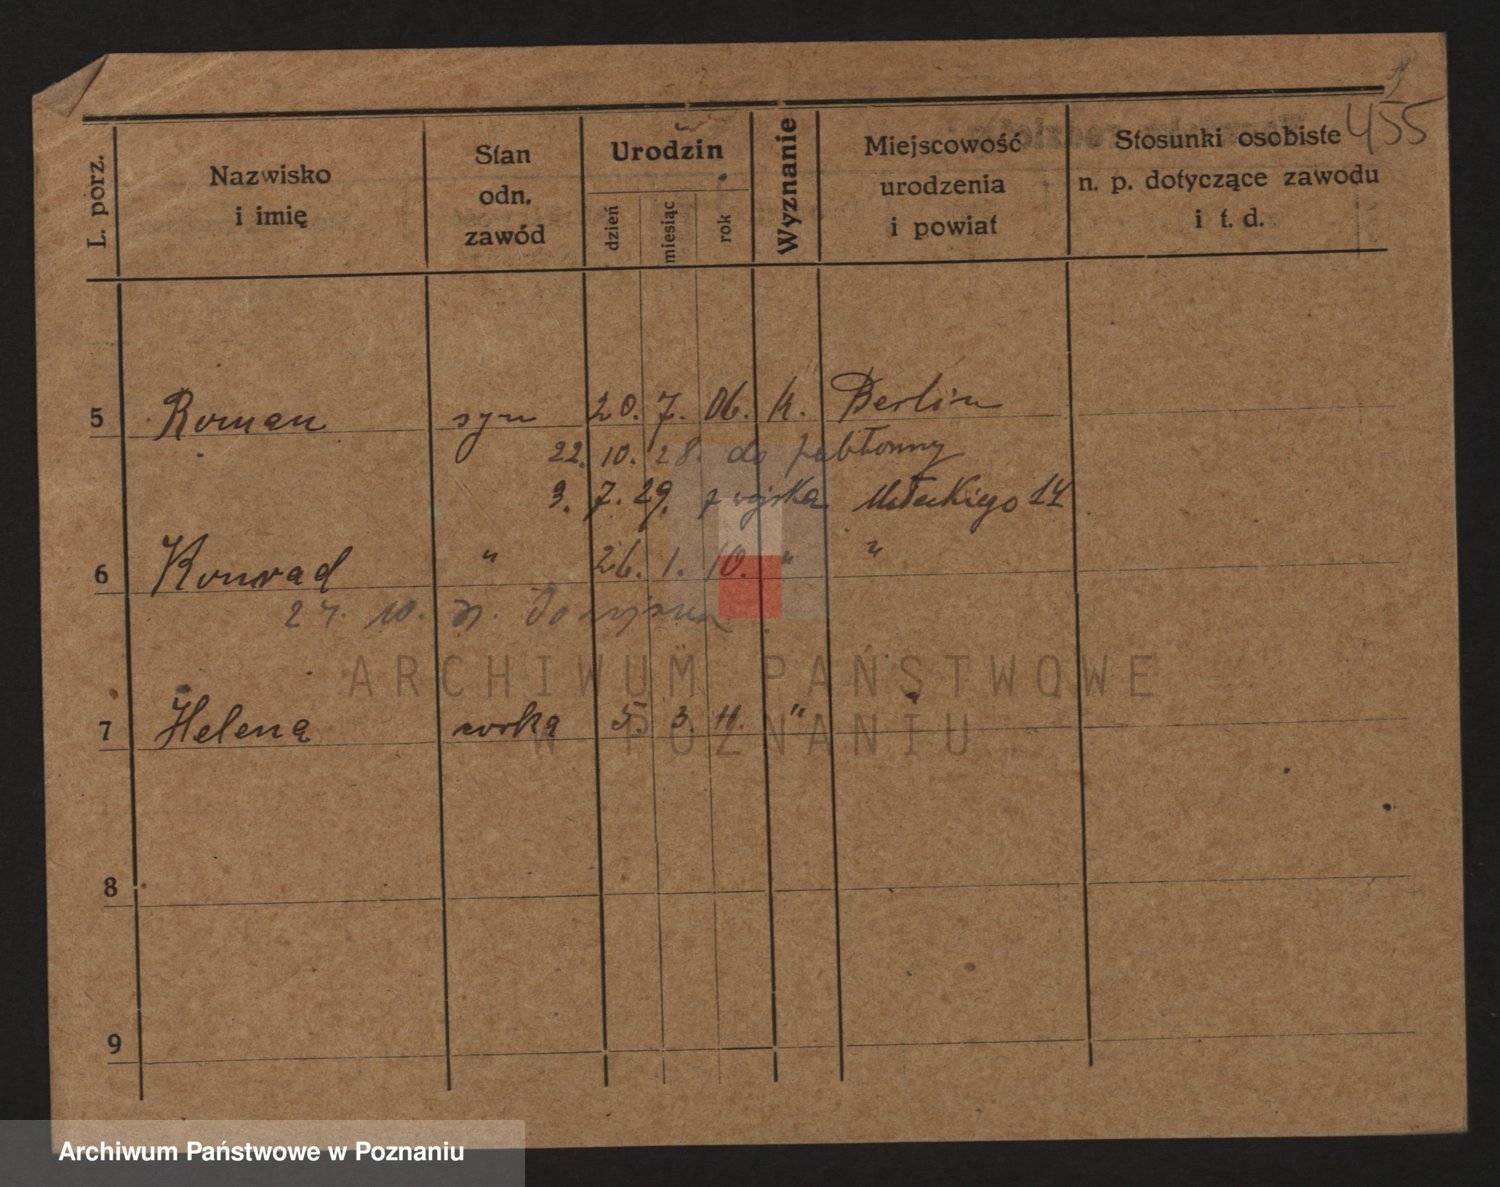 455
L. porz.
Nazwisko i imię
Stan odn. zawód
Urodzin
dzień miesiąc rok
Wyznanie
Miejscowość urodzenia i powiat
Stosunki osobiste n. p. dotyczące zawodu i t. d.
5 Roman syn 20. 7. 06. k. Berlin
22. 10. 28. do Jabłonny
3. 7. 29. z wojska Małeckiego 14
6 Konrad " 26. 1. 10. " "
27. 10.
7 Helena córka 5. 3. 11. "
ARCHIWUM PAŃSTWOWE
W POZNANIU
8
9
Archiwum Państwowe w Poznaniu